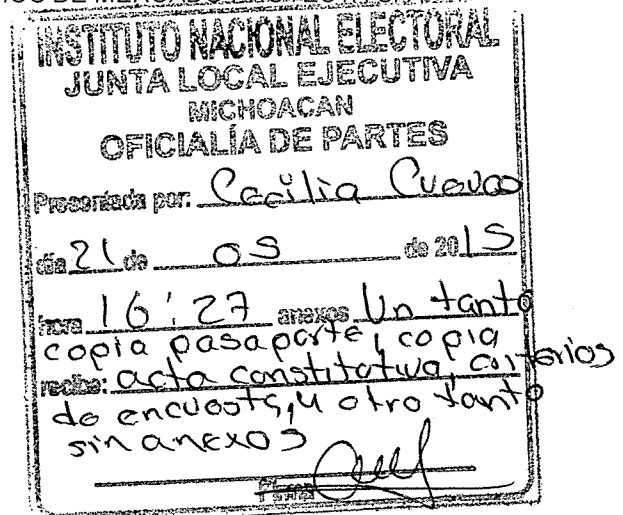 INSTITUTO NACIONAL ELECTORAL
JUNTA LOCAL EJECUTIVA
MICHOACAN
OFICIALÍA DE PARTES
Presentada por: Cecilia
día 21 de 05 de 2015
hora 16:27 anexos Un tanto
copia pasaporte, copia
recibe: acta constitutiva, criterios
de encuesta, y otro tanto
sin anexos
Firma